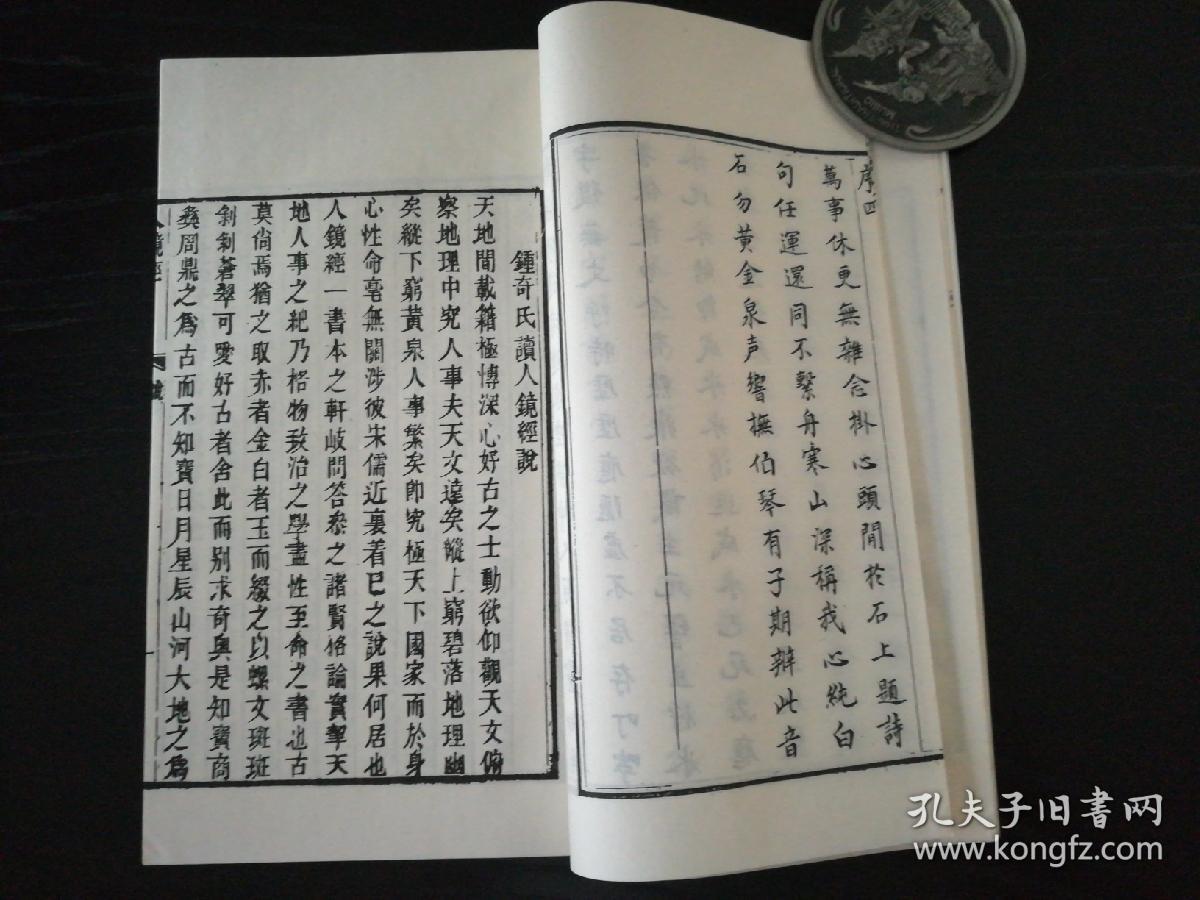 序 四
萬事休更無雜念掛心頭閒於石上題詩
句任運還同不繫舟寒山深稱我心純白
石勿黃金泉声響撫伯琴有子期辨此音
鍾奇氏讀人鏡經說
天地間載籍極博深心好古之士動欲仰觀天文俯
察地理中究人事夫天文遠矣縱上窮碧落地理幽
矣縱下窮黃泉人事繁矣即究極天下國家而於身
心性命毫無關涉彼宋儒近裏着己之說果何居也
人鏡經一書本之軒岐問答叅之諸賢格論實挈天
地人事之紀乃格物致治之學盡性至命之書也古
莫尙焉猶之取赤者金白者玉而綴之以螺文斑斑
剝剝蒼翠可愛好古者舍此而别求奇與是知寶商
彝周鼎之爲古而不知寶日月星辰山河大地之爲
人鏡經
孔夫子旧书网
www.kongfz.com